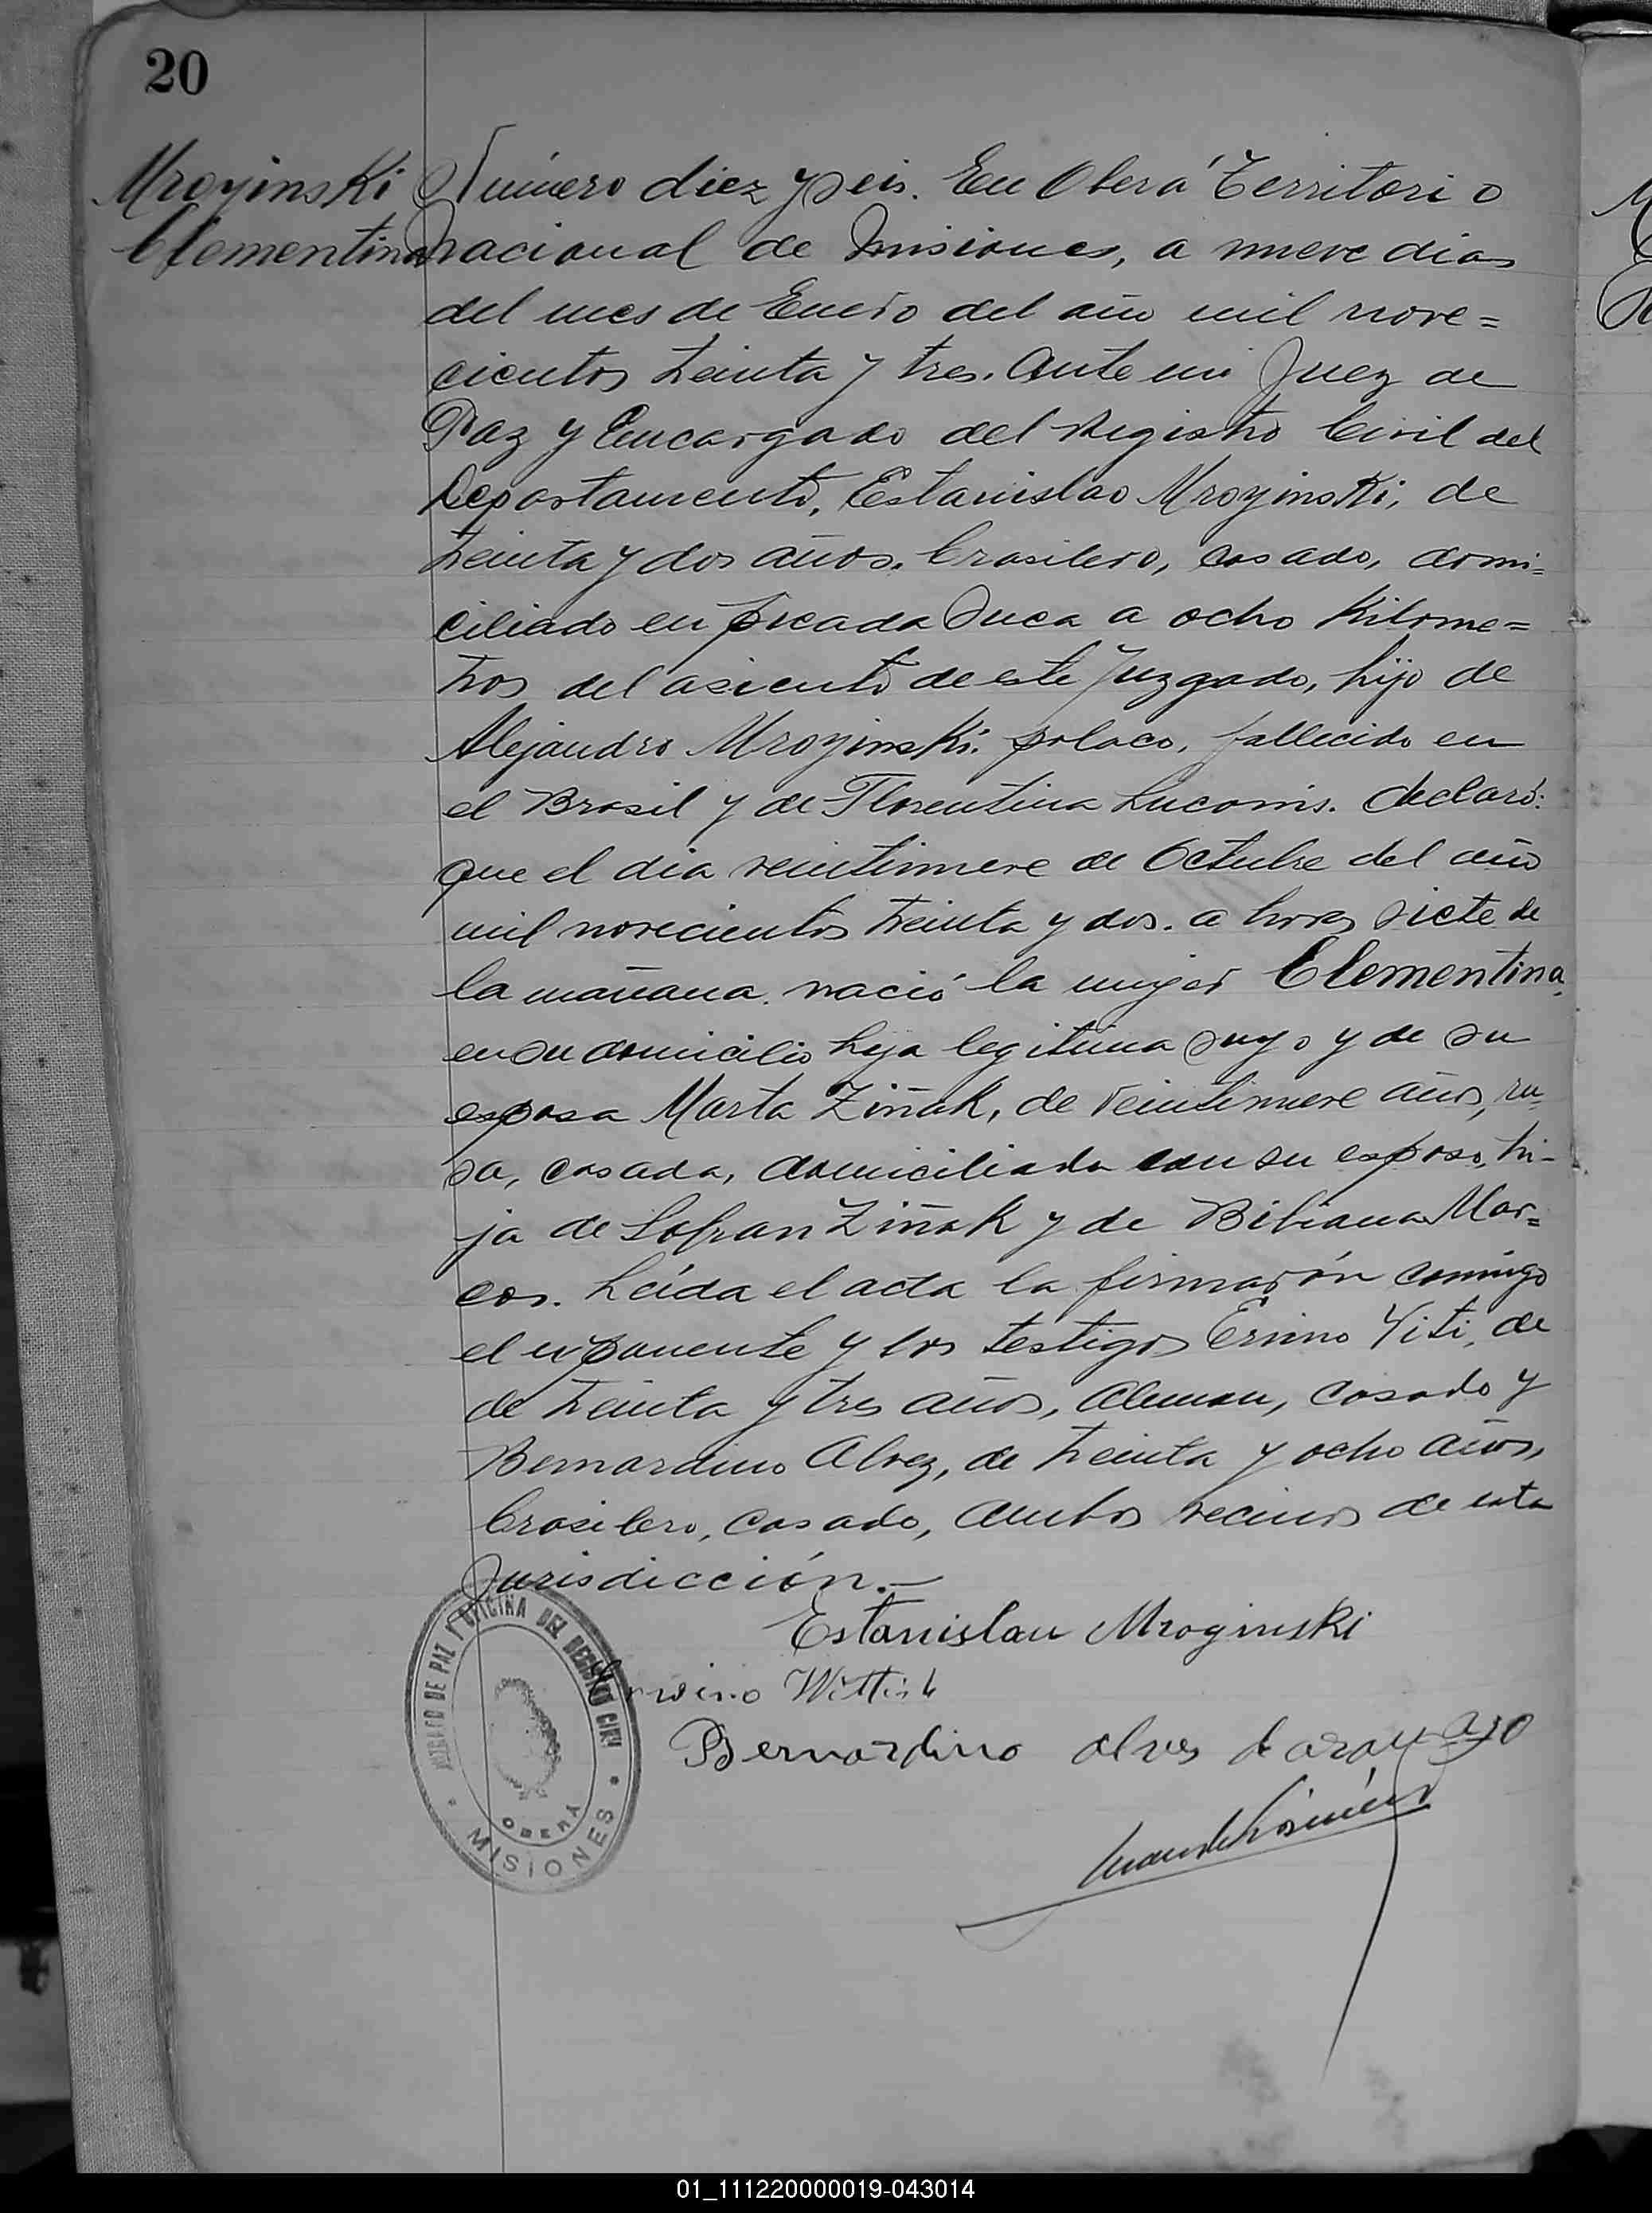 20
Mroyinski
Clementina
Número diez y seis. En Oberá Territorio
nacional de Misiones, a nueve dias
del mes de Enero del año mil nove=
cientos treinta y tres. Ante mi Juez de
Paz y Encargado del Registro Civil del
Departamento, Estanislao Mroyinski, de
treinta y dos años, brasilero, casado, domi=
ciliado en picada Suca a ocho kilome=
tros del asiento de este Juzgado, hijo de
Alejandro Mroyinski, polaco, fallecido en
el Brasil y de Florentina Lucovis. declaró:
que el dia veintinueve de Octubre del año
mil novecientos treinta y dos. a horas siete de
la mañana. nació la mujer Clementina,
en su domicilio, hija legitima suya y de su
esposa Marta Ziñak, de veintinueve años, ru=
sa, casada, domiciliada con su esposo, hi-
ja de Sofran Ziñak y de Bibiana Mar=
cos. Leída el acta la firmarón comigo
el exponente y los testigos Ervino Viti, de
de treinta y tres años, aleman, casado y
Bernardino Alvez, de treinta y ocho años,
brasilero, casado, ambos vecinos de esta
Jurisdicción.—
Estanislau Mroginski
Erwino Wittich
Bernardino Alves de araujo
JUZGADO DE PAZ Y OFICINA DEL REGISTRO CIVIL
OBERÁ
MISIONES
01_111220000019-043014